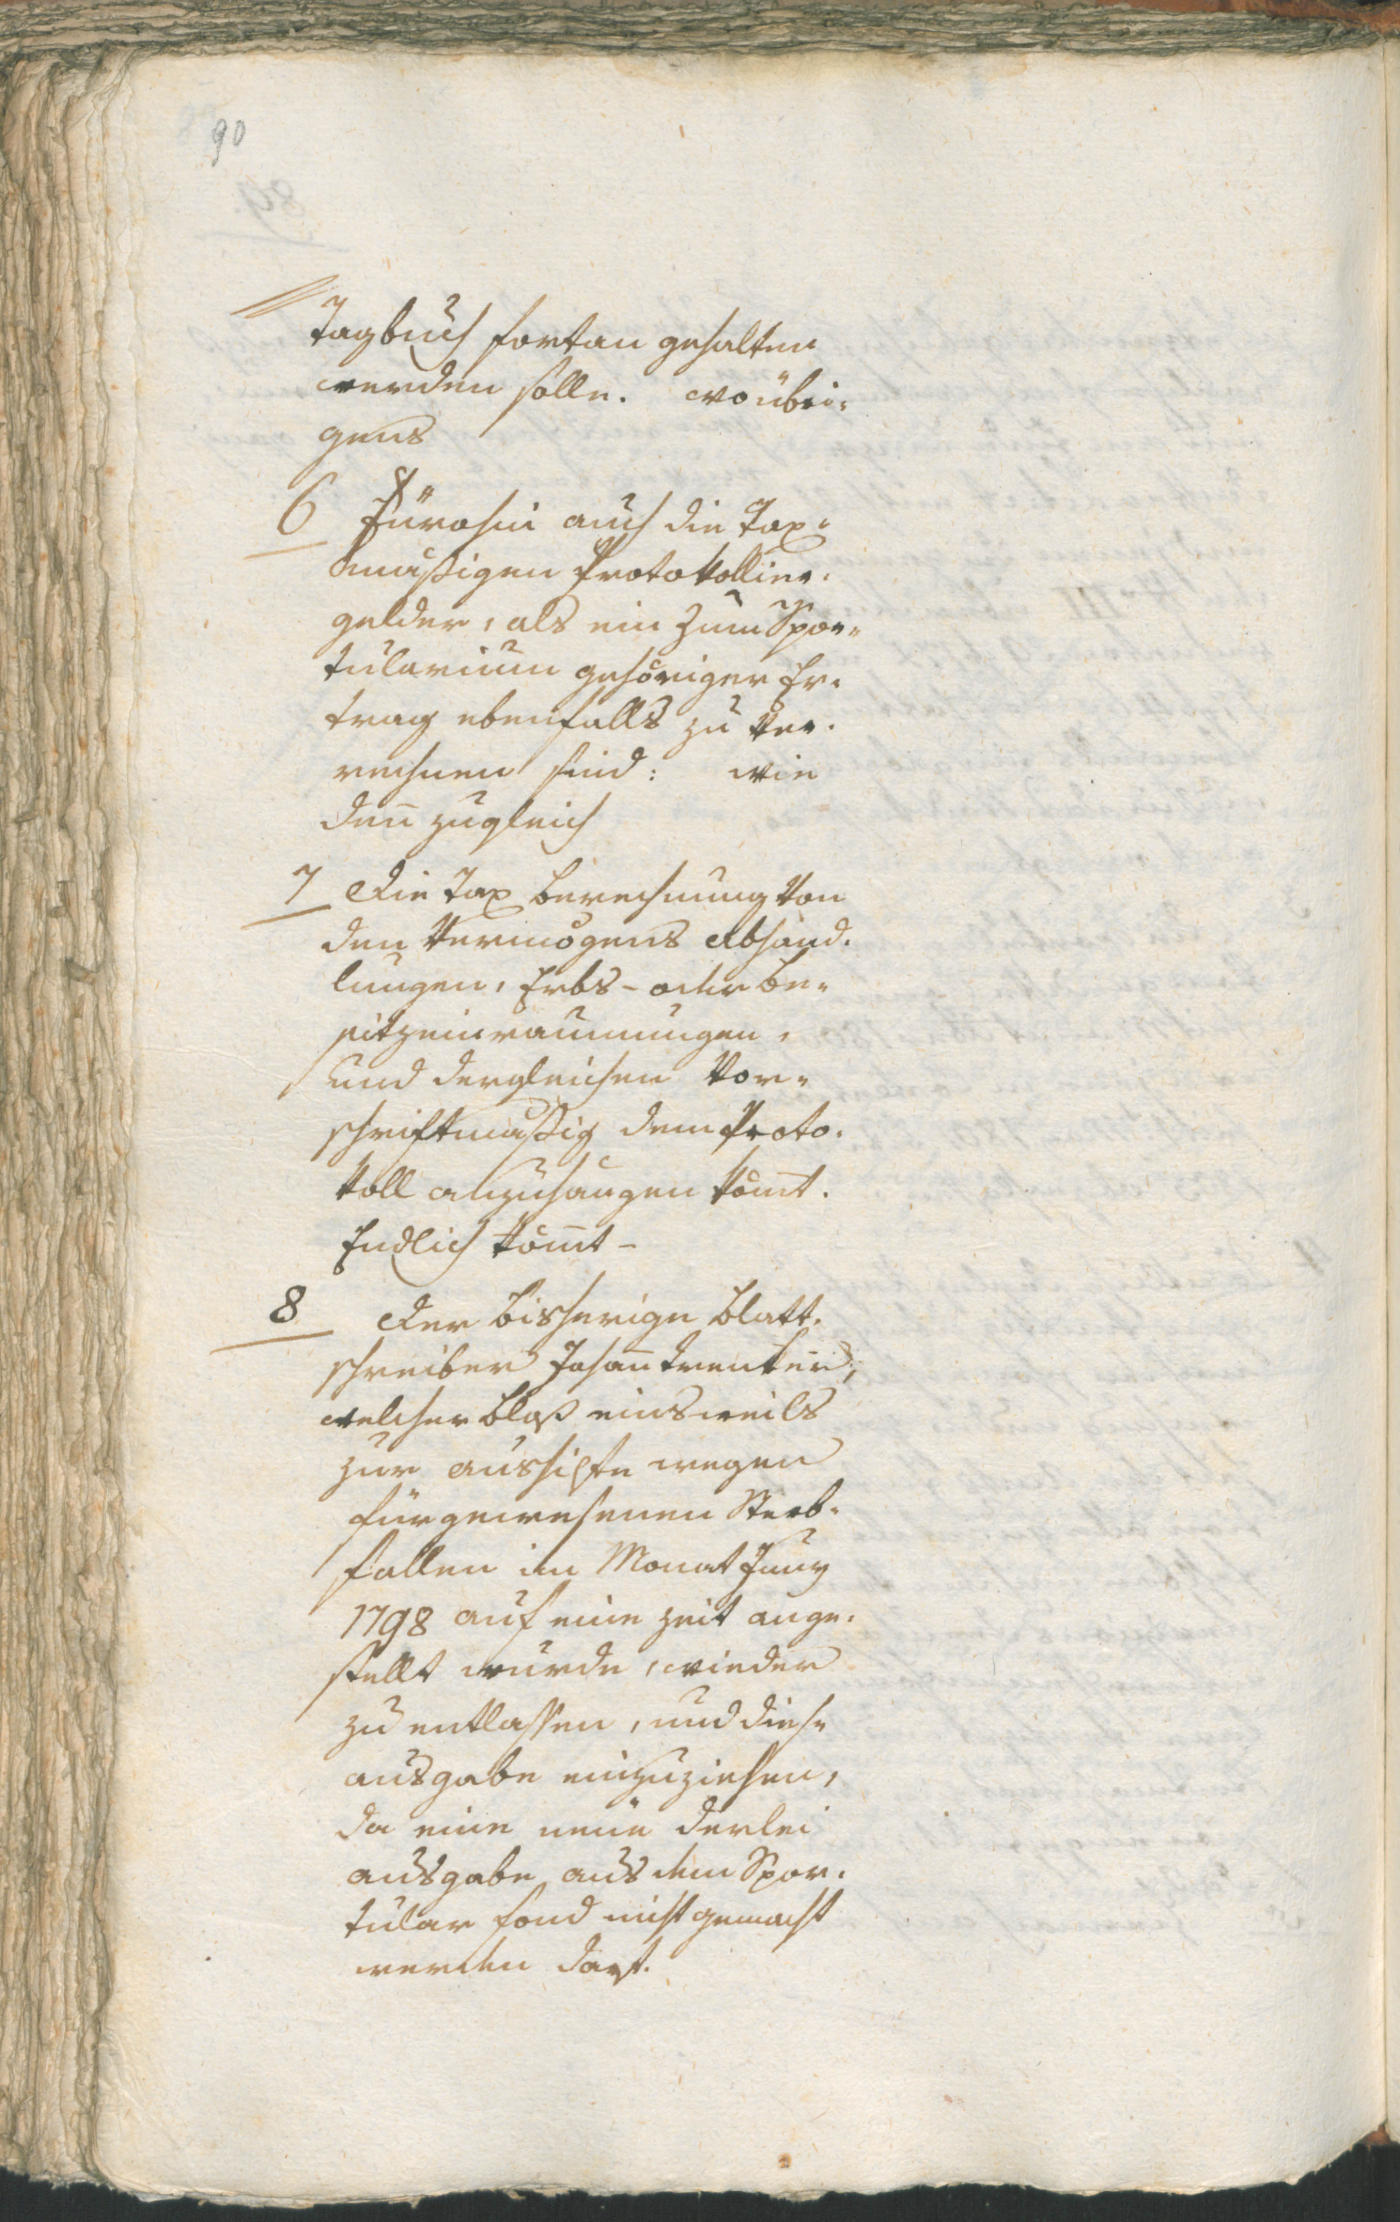 90
Tagbuch fortan gehalten
werden solle. woübri-
gens
6 Fürohin auch die Tax-
mäßigen Protokollier-
gelder, als ein zum Spor-
tularium gehöriger Er-
trag ebenfalls zu ver-
rechnen sind: wie
den̄ zugleich
7 Die Tax berechnung von
den Vermögens Abhand-
lungen, Erbs- oder Be-
sitzeinraumungen,
und dergleichen Vor-
schriftmäßig dem Proto-
koll anzuhangen kom̄t.
Endlich kom̄t -
8 Der bisherige Blatt-
schreiber Johan̄ Trenker,
welcher bloß einsweils
zur aushilfe wegen
fürgewesenen Sterb-
fällen im Monat Juny
1798 auf eine zeit ange-
stellt wurde, wieder
zu entlassen, und diese
ausgabe einzuziehen,
da eine neüe derlei
ausgabe aus dem Spor-
tular fond nicht gemacht
werden darf.